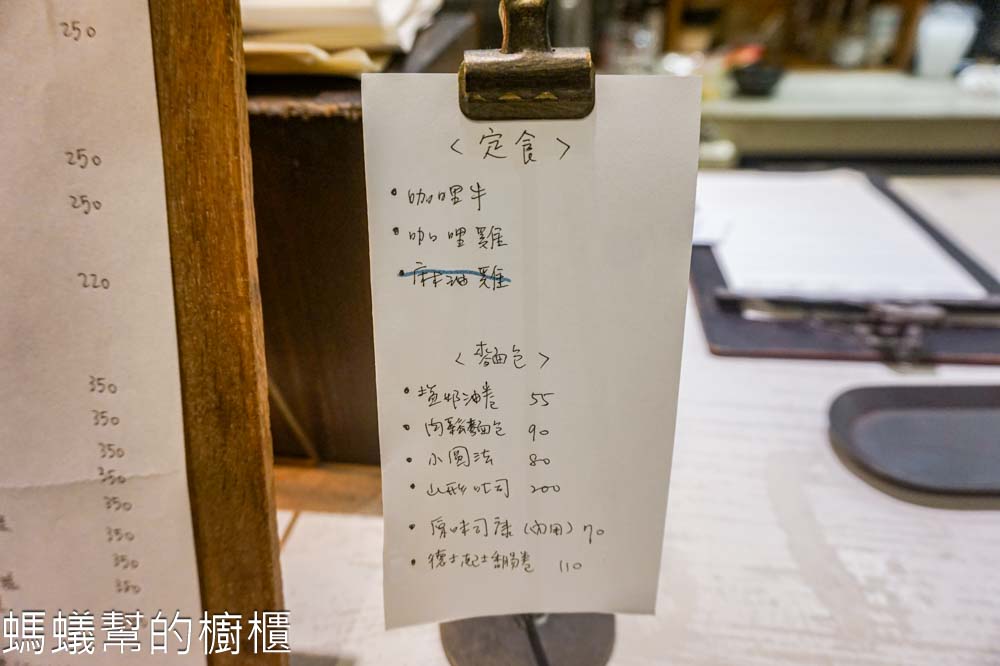 250
250
250
220
350
350
350
350
350
350
350
350
〈定食〉
• 咖哩牛
• 咖哩雞
• 麻油雞
〈麵包〉
• 塩奶油卷 55
• 肉鬆麵包 90
• 小圓法 80
• 山形吐司 200
• 原味司康(內用) 70
• 德式起士香腸卷 110
螞蟻幫的櫥櫃